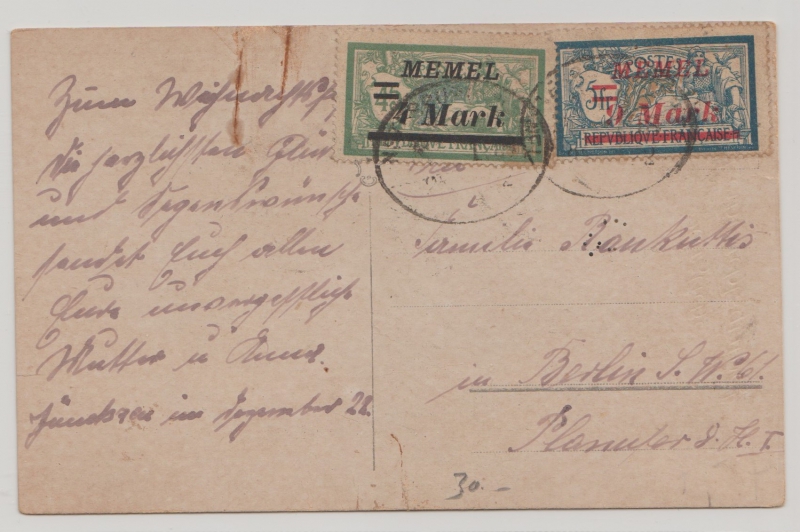 Zum Weihnachtsfe
die herzlichsten Glück
und Segenswünsche
sendet Euch allen
Eure unvergeßliche
Mutter u
im Dezember 22.
MEMEL
4 Mark
REPVBLIQUE FRANÇAISE
POSTES
MEMEL
Mark
REPVBLIQUE FRANÇAISE
Familie
in Berlin S. W. 61.
Planufer 8. H. I
30.-